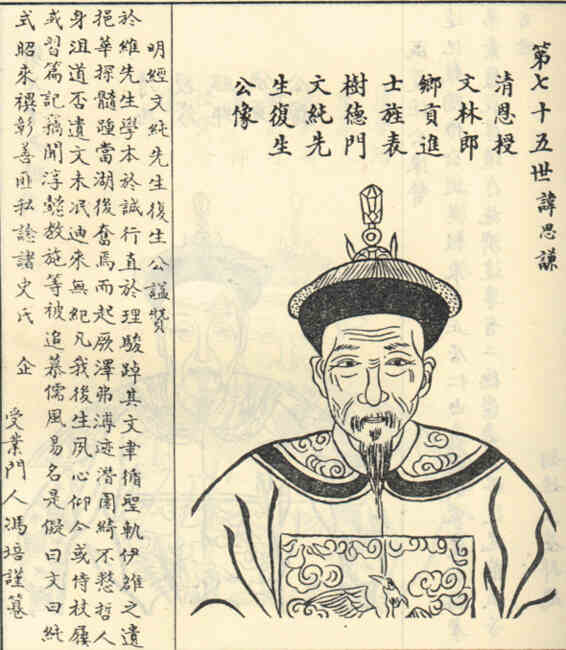 第七十五世 諱思謙
清恩授
文林郎
鄉貢進
士旌表
樹德門
文純先
生復生
公像
明經文純先生復生公諡贊
於維先生學本於誠行直於理駿踔其文聿循聖軌伊雒之遺
挹華探髓踵當湖後奮焉而起厥澤弗溥迹潛園綺不憖哲人
身沮道否遺文未泯迪來無紀凡我後生夙心仰今或侍杖屨
或習篇記竊聞淳懿教施等被追慕儒風易名是儗曰文曰純
式昭來禩彰善匪私諗諸史氏 企
受業門人馮培謹纂